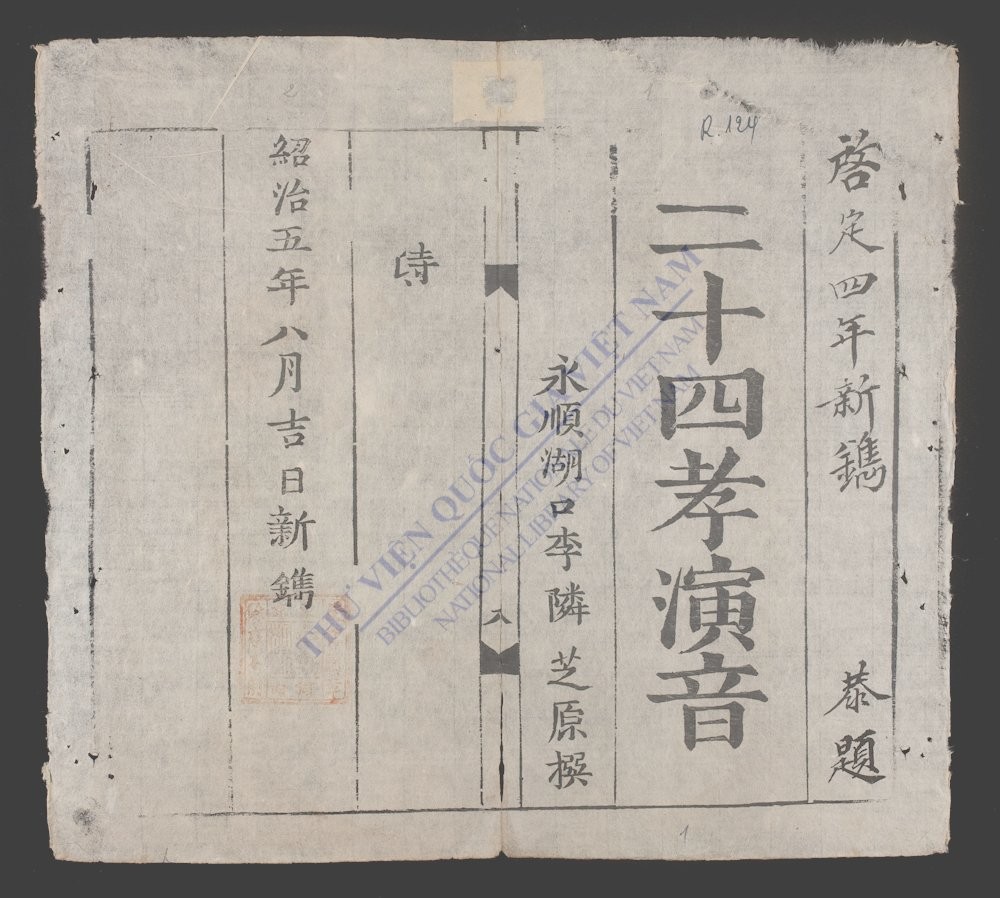 R.124
啓定四年新鐫 恭題
二十四孝演音
永順湖口李隣芝原撰
八
紹治五年八月吉日新鐫
THƯ VIỆN QUỐC GIA VIỆT NAM
BIBLIOTHÈQUE NATIONALE DU VIETNAM
NATIONAL LIBRARY OF VIETNAM